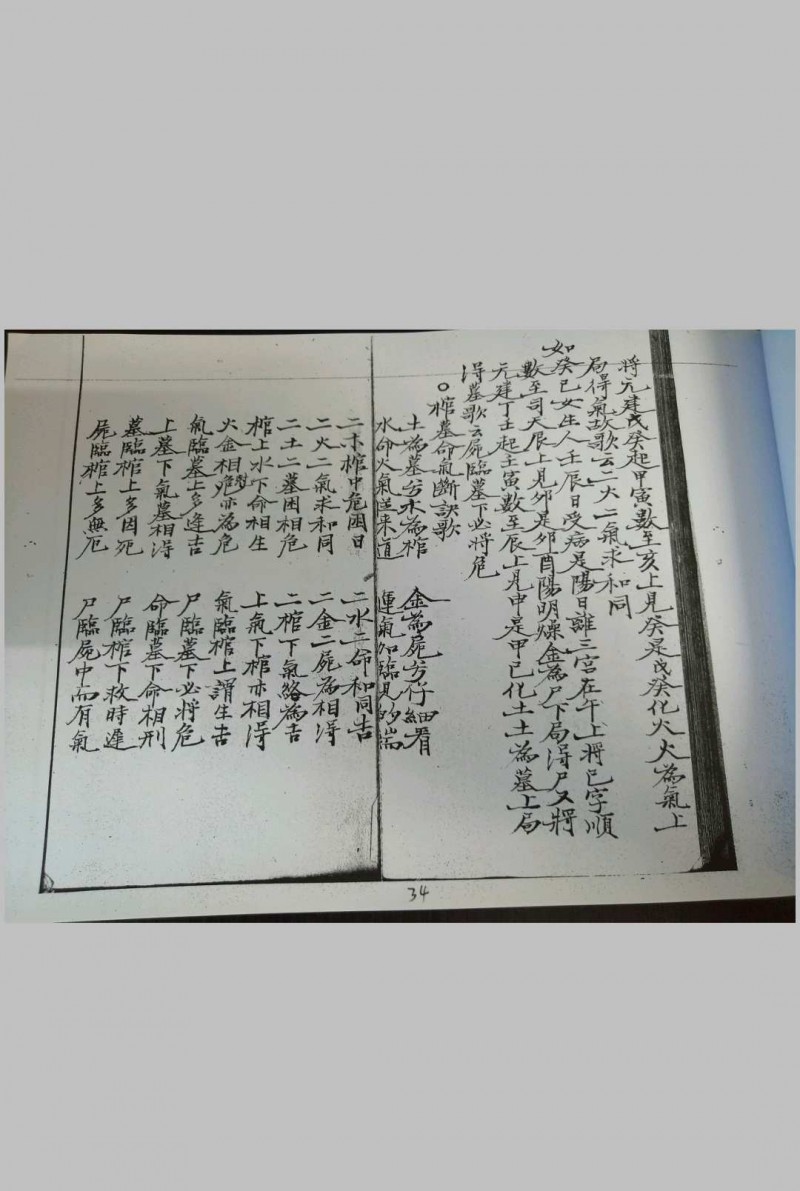 將元建戊癸起甲寅數至亥上見癸是戊癸化火火為氣上
局得氣故歌云二火二氣求和同
如癸巳女生人壬辰日受病是陽日離三宮在午上將巳字順
數至司天辰上見夘是夘酉陽明燥金為尸下局淂尸又將
元建丁壬起壬寅數至辰上見甲是甲己化土土為墓上局
淂墓歌云屍臨墓下必將危
○棺墓命氣斷訣歌
土為墓兮木為棺 金為屍兮仔細看
水命火氣逆來道 運氣加臨見的端
二木棺中危困日 二水二命和同吉
二火二氣求和同 二金二屍為相淂
二土二墓困相危 二棺下氣絡為吉
棺上水下命相生 上氣下棺亦相淂
火金相尅亦為危 氣臨棺上謂生吉
氣臨墓上多逢吉 尸臨墓下必將危
上墓下氣墓相淂 命臨墓下命相刑
墓臨棺上多因死 尸臨棺下救時遲
屍臨棺上多無厄 尸臨屍中而有氣
34